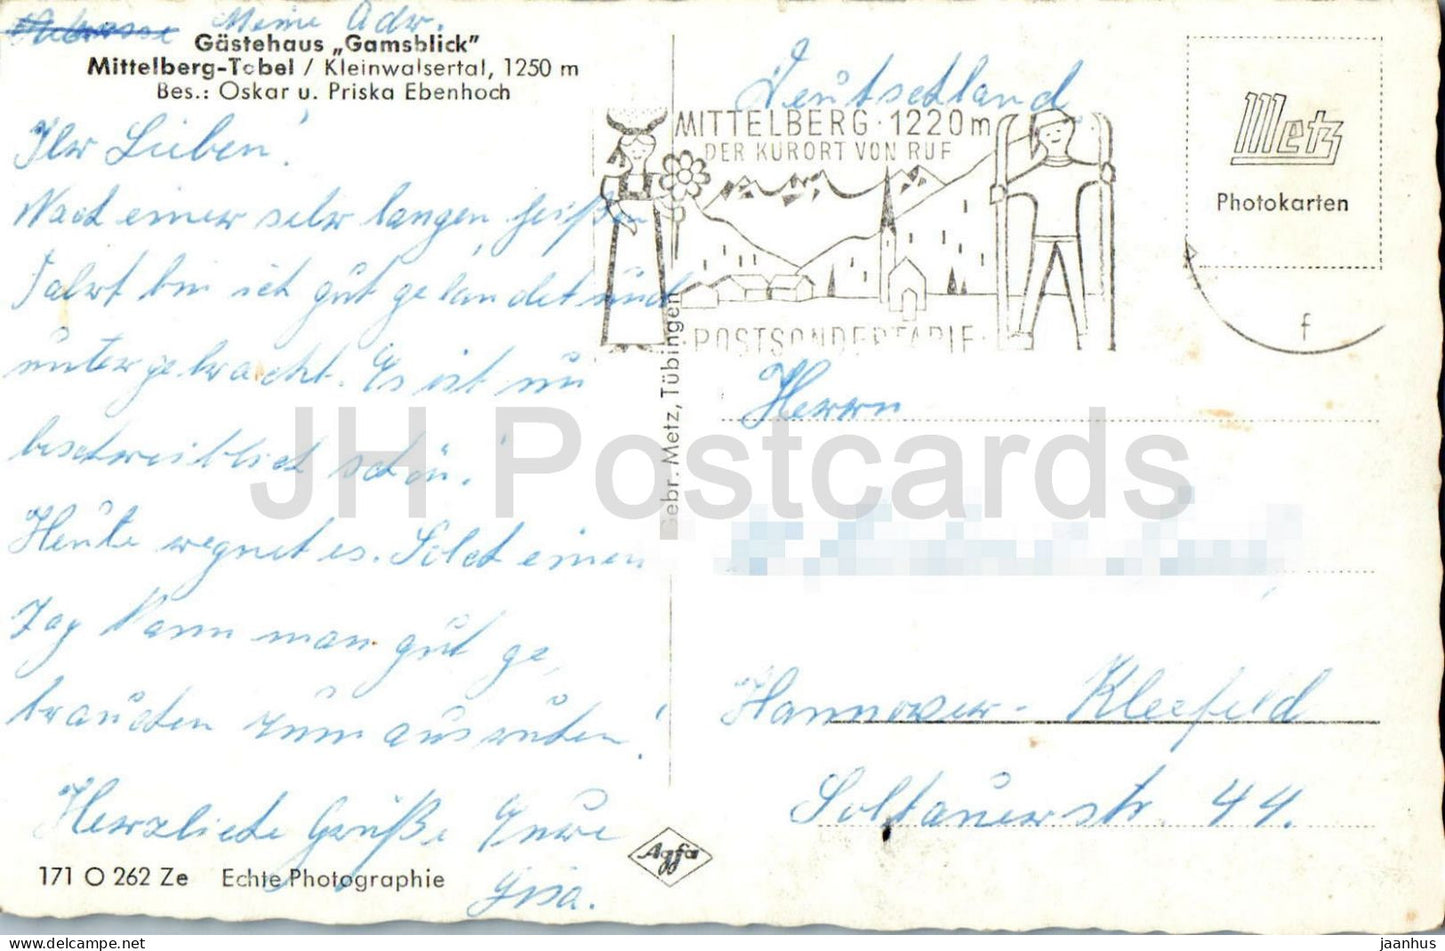 Meine Adr.
Gästehaus „Gamsblick"
Mittelberg-Tobel / Kleinwalsertal, 1250 m
Bes.: Oskar u. Priska Ebenhoch
Ihr Lieben!
Nach einer sehr langen, heißen
Fahrt bin ich gut gelandet und
untergebracht. Es ist un
beschreiblich schön!
Heute regnet es. Solch einen
Tag kann man gut ge,
brauchen zum ausruhen!
Herzliche Grüße Eure
Gisa.
171 O 262 Ze Echte Photographie
Agfa
Gebr. Metz, Tübingen
Deutschland
MITTELBERG · 1220m
DER KURORT VON RUF
POSTSONDERTARIF
Metz
Photokarten
f
Herrn
Hannover-Kleefeld
Soltauerstr. 44.
JH Postcards
jaanhus @ delcampe.net